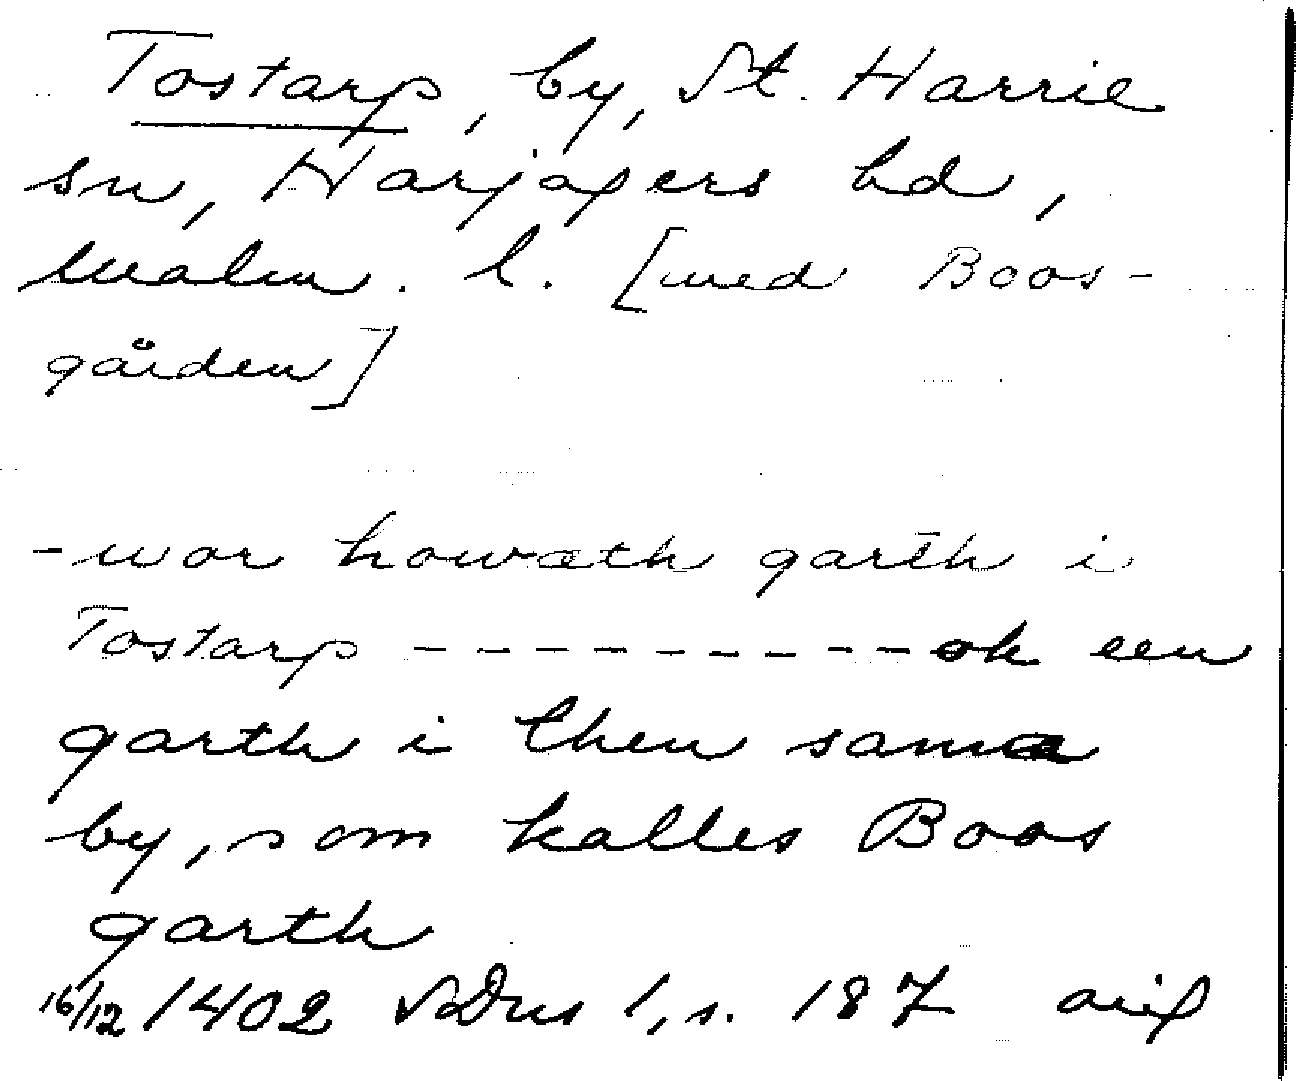 Tostarp, by, St. Harrie
sn, Harjagers hd,
Malm. l. [med Boos-
gården]
-wor howæth garth i
Tostarp ----------- ok een
garth i then sama
by, som kalles Boos
garth
16/12 1402 SDns 1, s. 187 orig